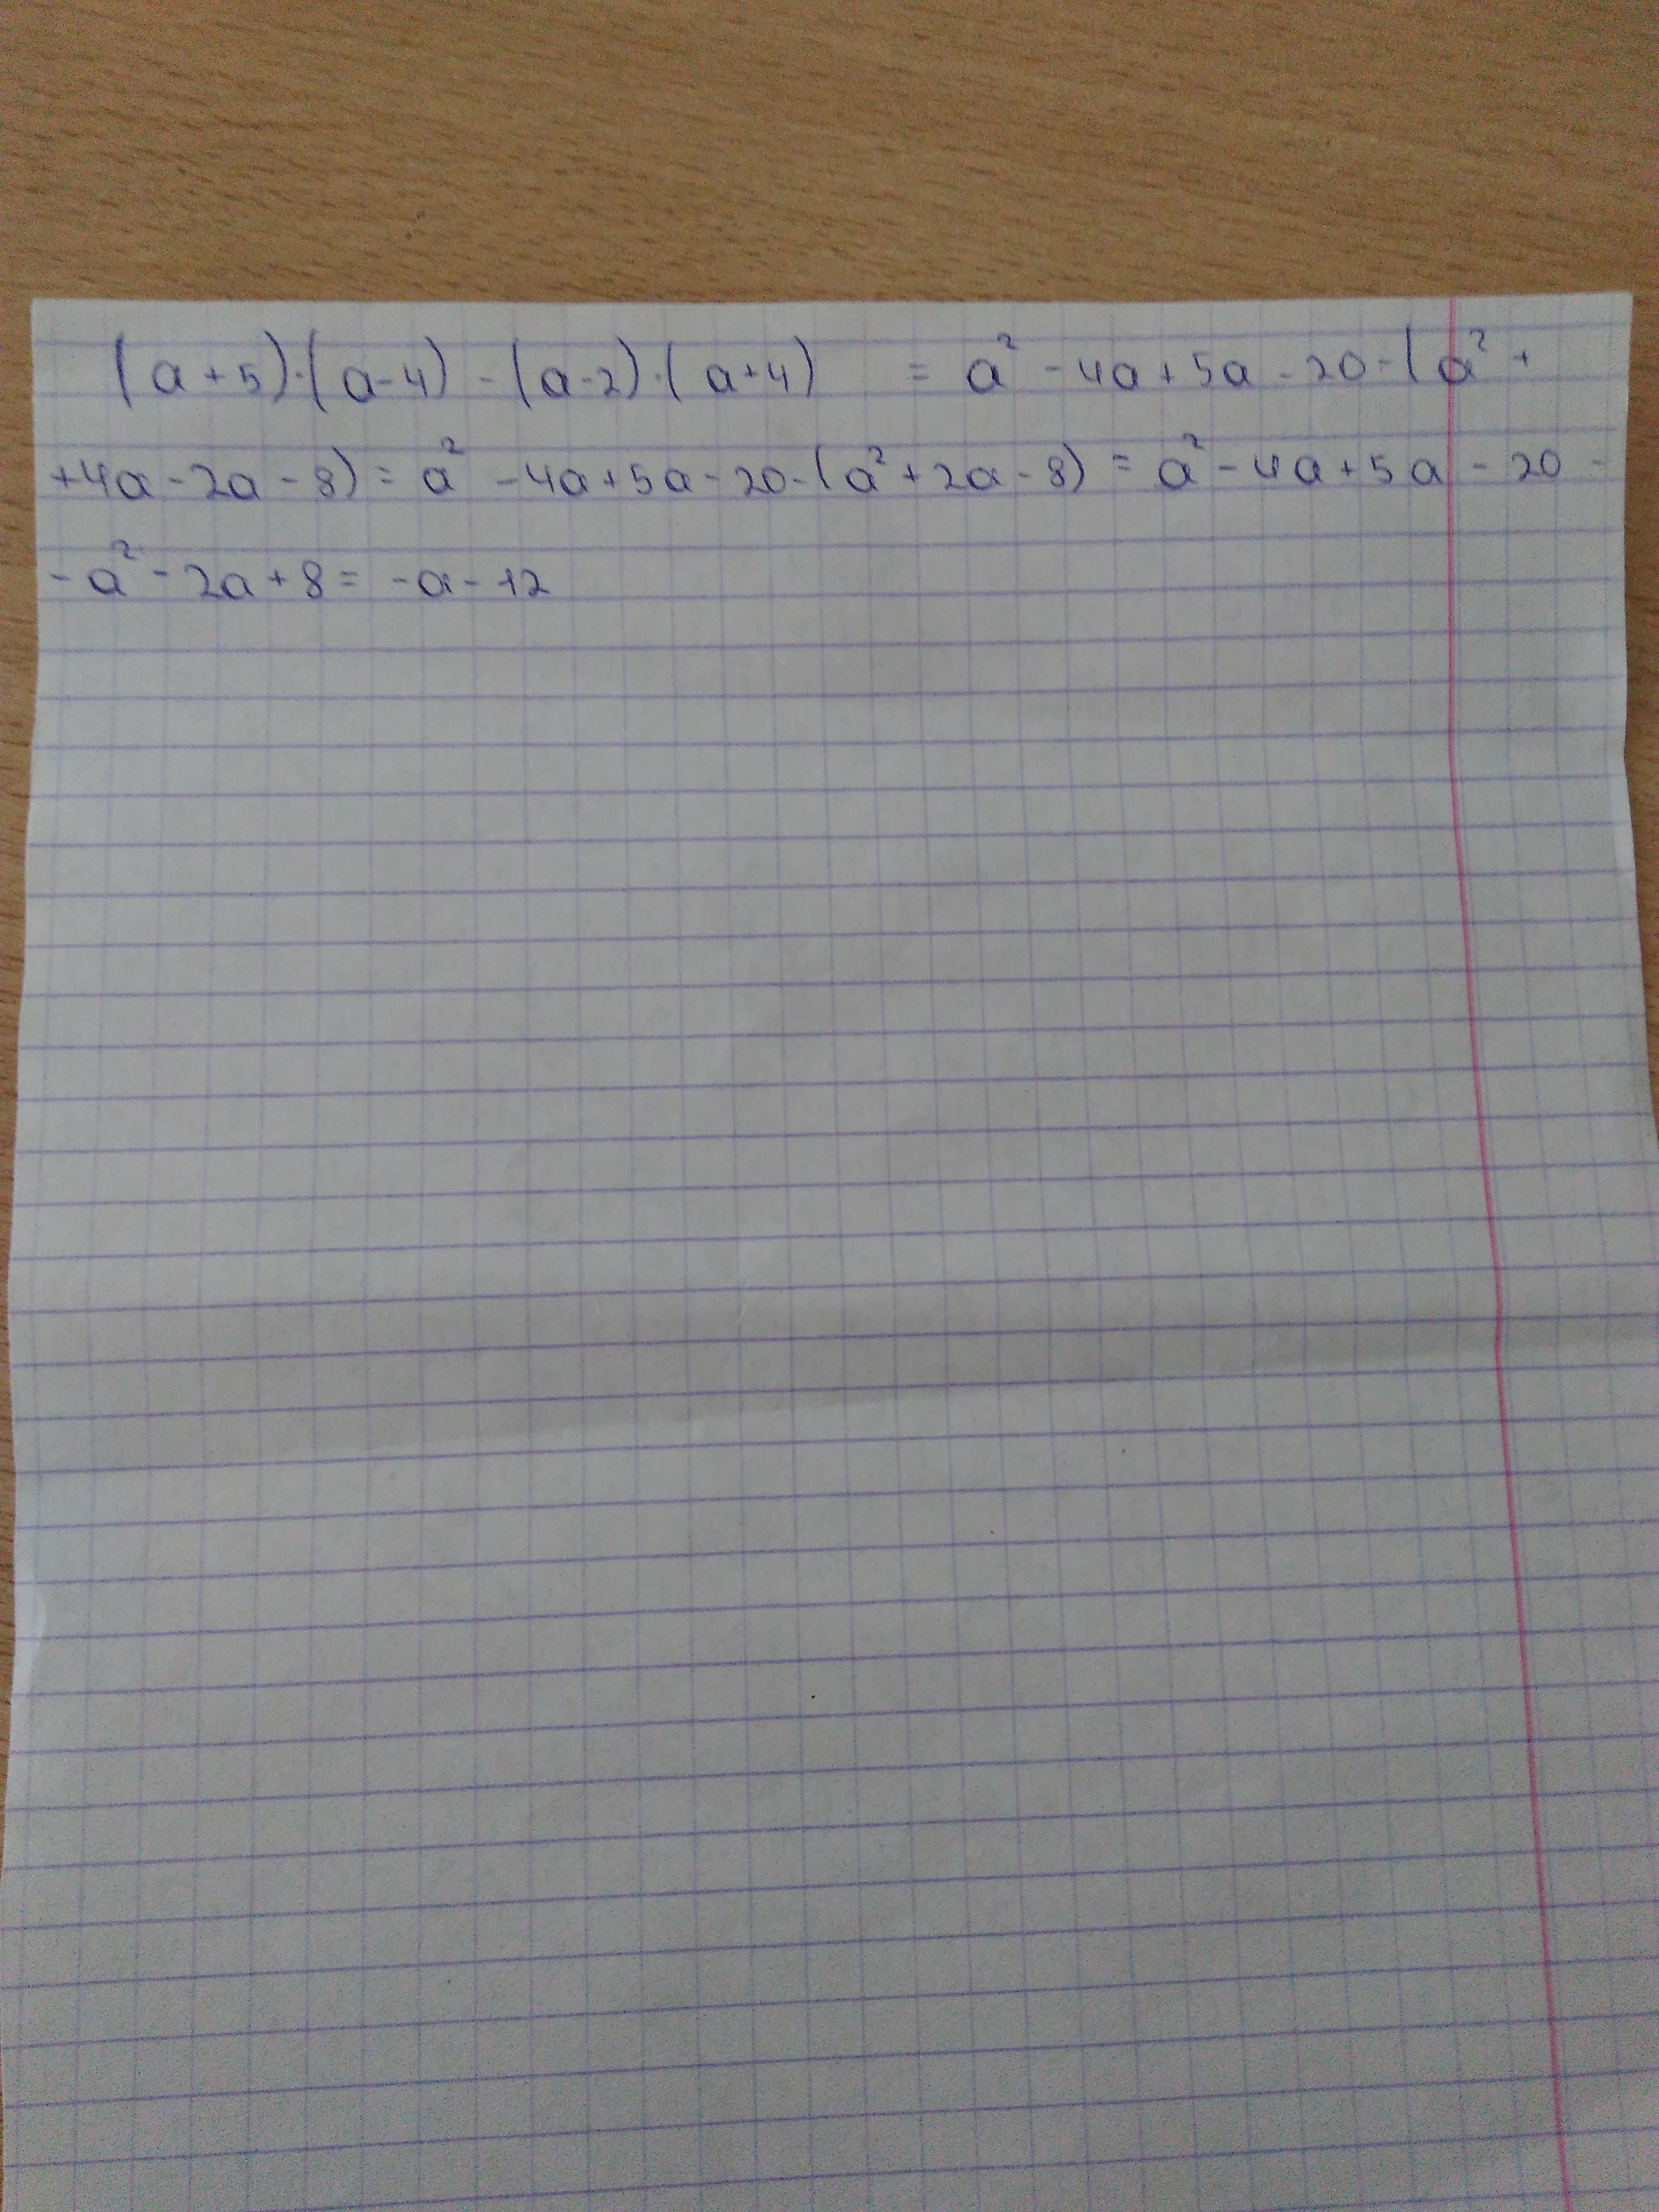 (a+5)·(a-4)-(a-2)·(a+4) = a²-4a+5a-20-(a²+
+4a-2a-8)=a²-4a+5a-20-(a²+2a-8)=a²-4a+5a-20-
-a²-2a+8=-a-12